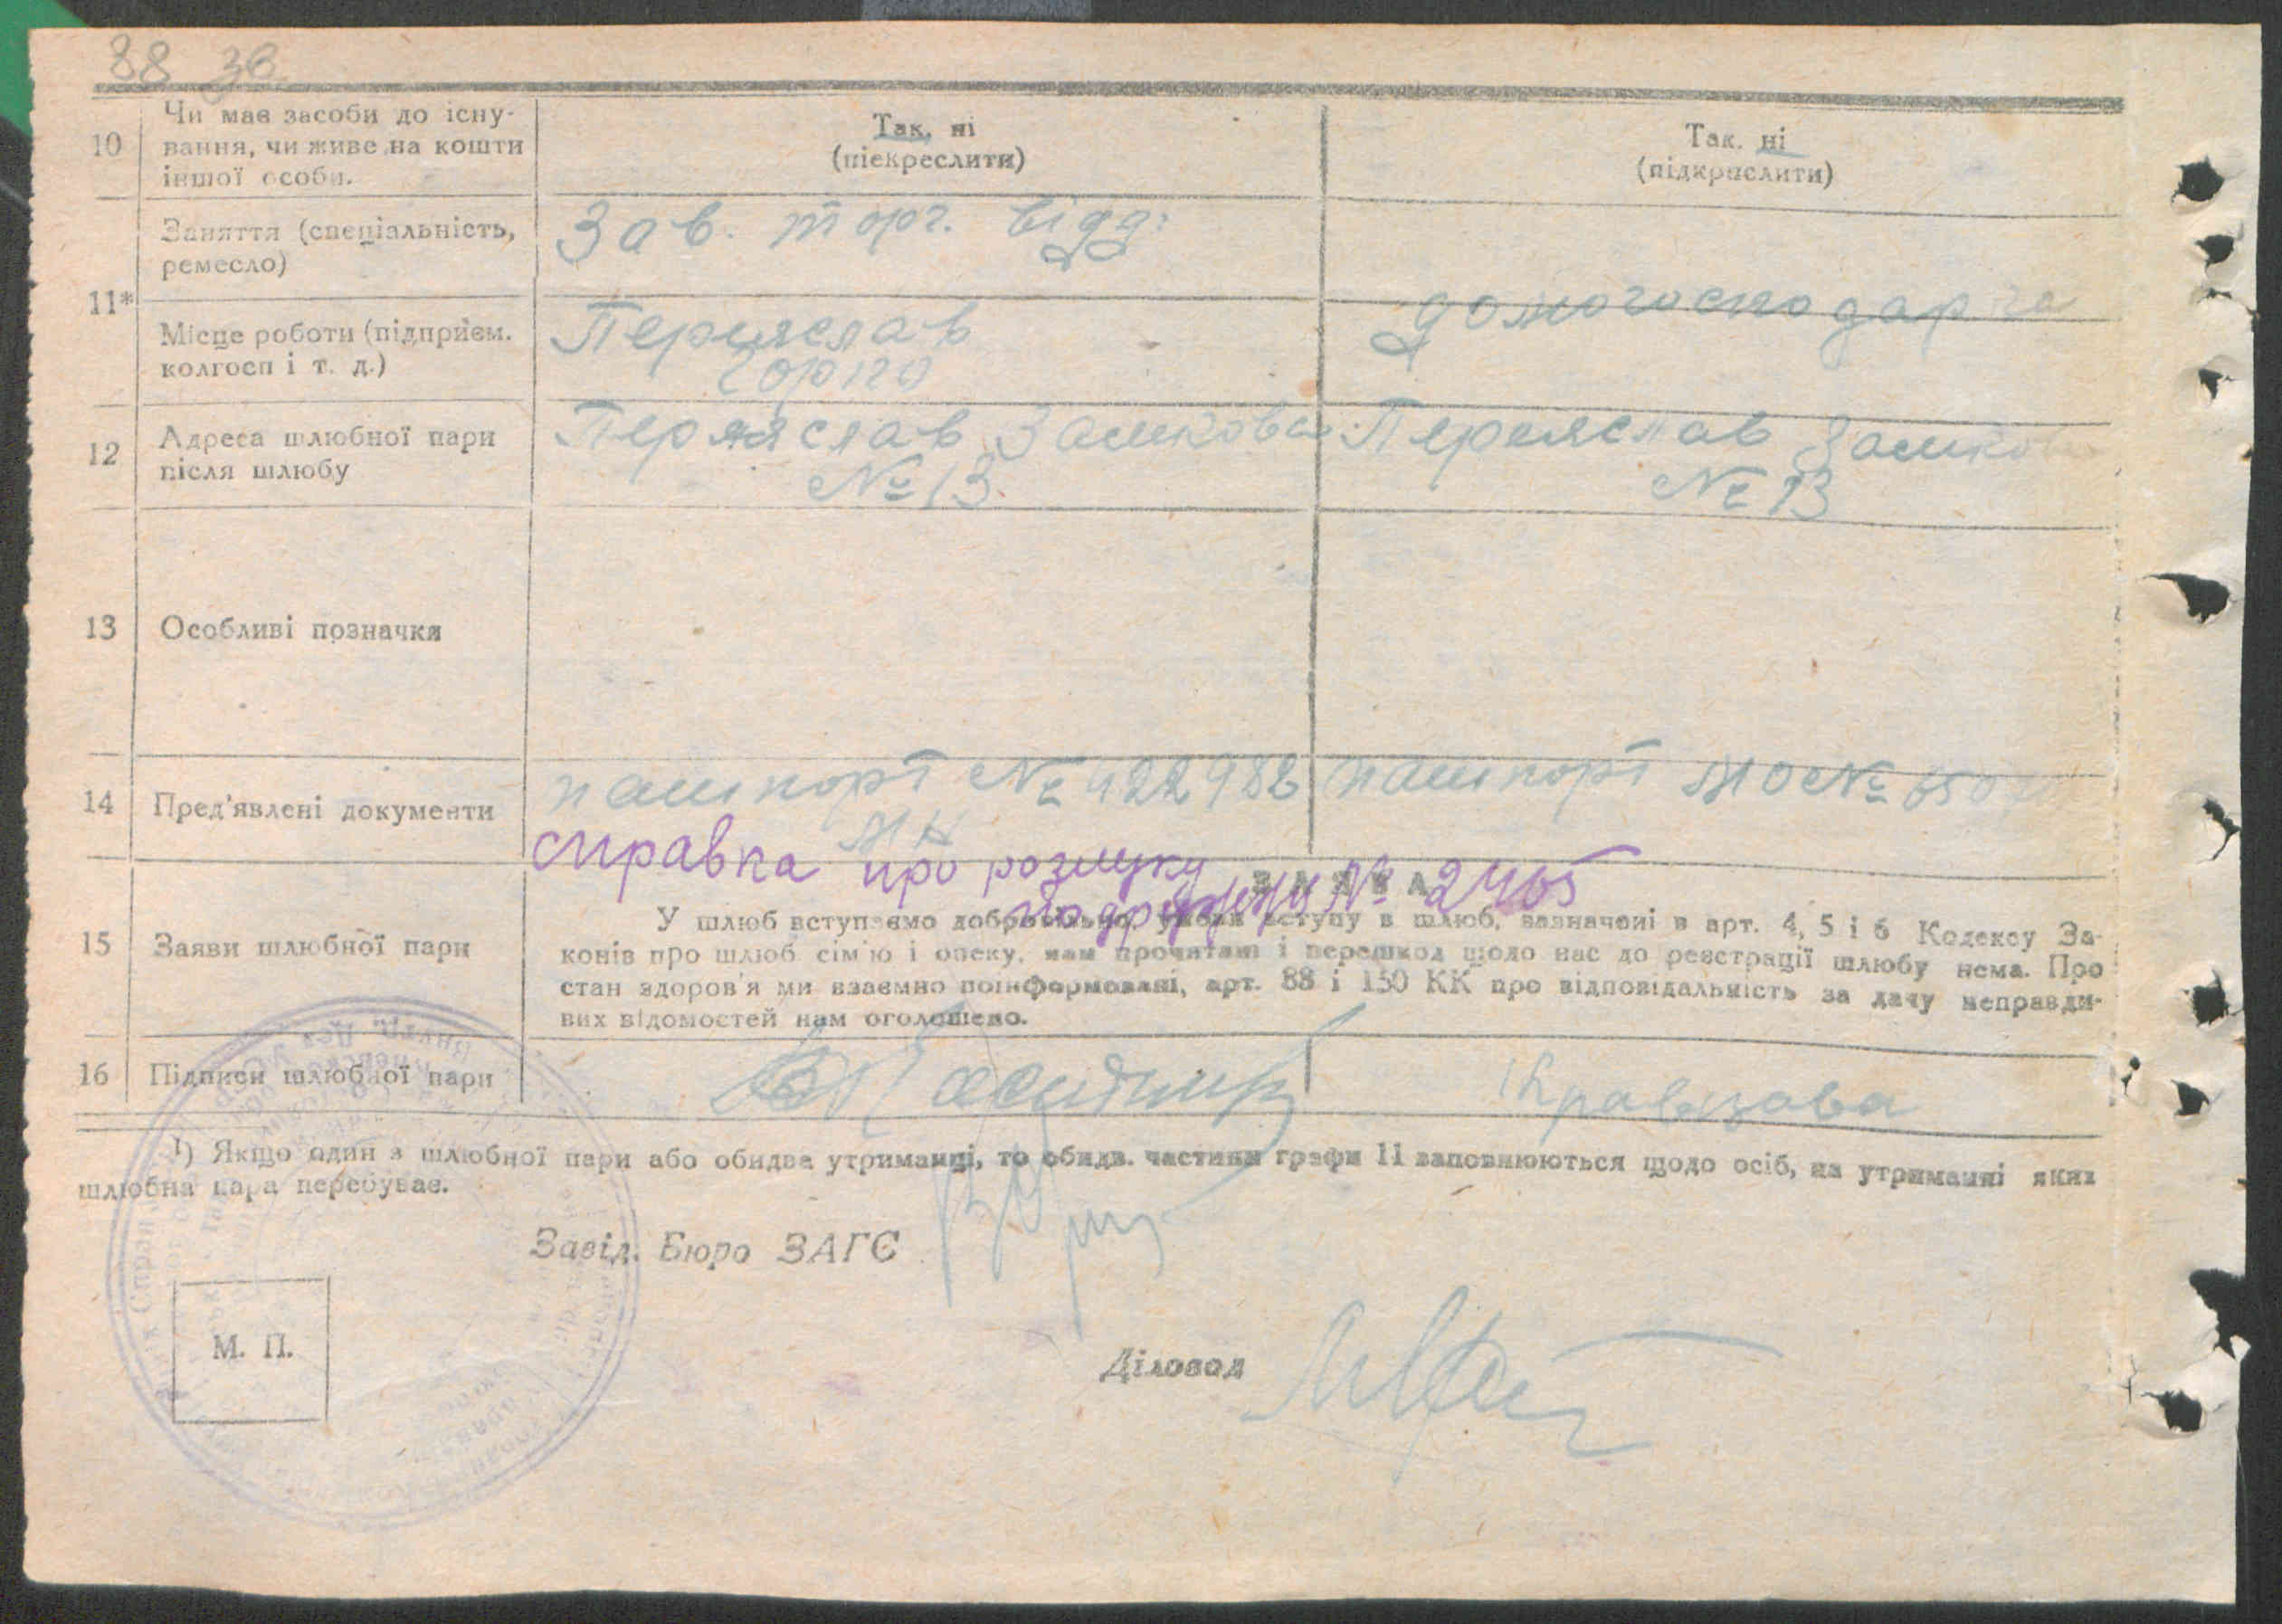 88 зв.
10
Чи має засоби до існу-
вання, чи живе на кошти
іншої особи.
Так, ні
(піекреслити)
Так. ні
(підкреслити)
11*
Заняття (спеціальність,
ремесло)
Зав. торг. відд:
Місце роботи (підприєм.
колгосп і т. д.)
Переяслав
горпо
домогосподарка
12
Адреса шлюбної пари
після шлюбу
Переяслав Замкова
№ 13
Переяслав Замкова
№ 13
13
Особливі позначки
14
Пред'явлені документи
пашпорт № 422982
пашпорт №
справка про розлуку
подружжя № 2465
15
Заяви шлюбної пари
ЗАЯВА
У шлюб вступаємо добровільно, умови вступу в шлюб, зазначені в арт. 4, 5 і 6 Кодексу За-
конів про шлюб сім'ю і опеку, нам прочитані і перешкод щодо нас до реєстрації шлюбу нема. Про
стан здоров'я ми взаємно поінформовані, арт. 88 і 150 КК про відповідальність за дачу неправди-
вих відомостей нам оголошено.
16
Підписи шлюбної пари
Кравцова
¹) Якщо один з шлюбної пари або обидва утриманці, то обидв. частини графи 11 заповнюються щодо осіб, на утриманні яких
шлюбна пара перебуває.
Завід. Бюро ЗАГС
М. П.
Діловод